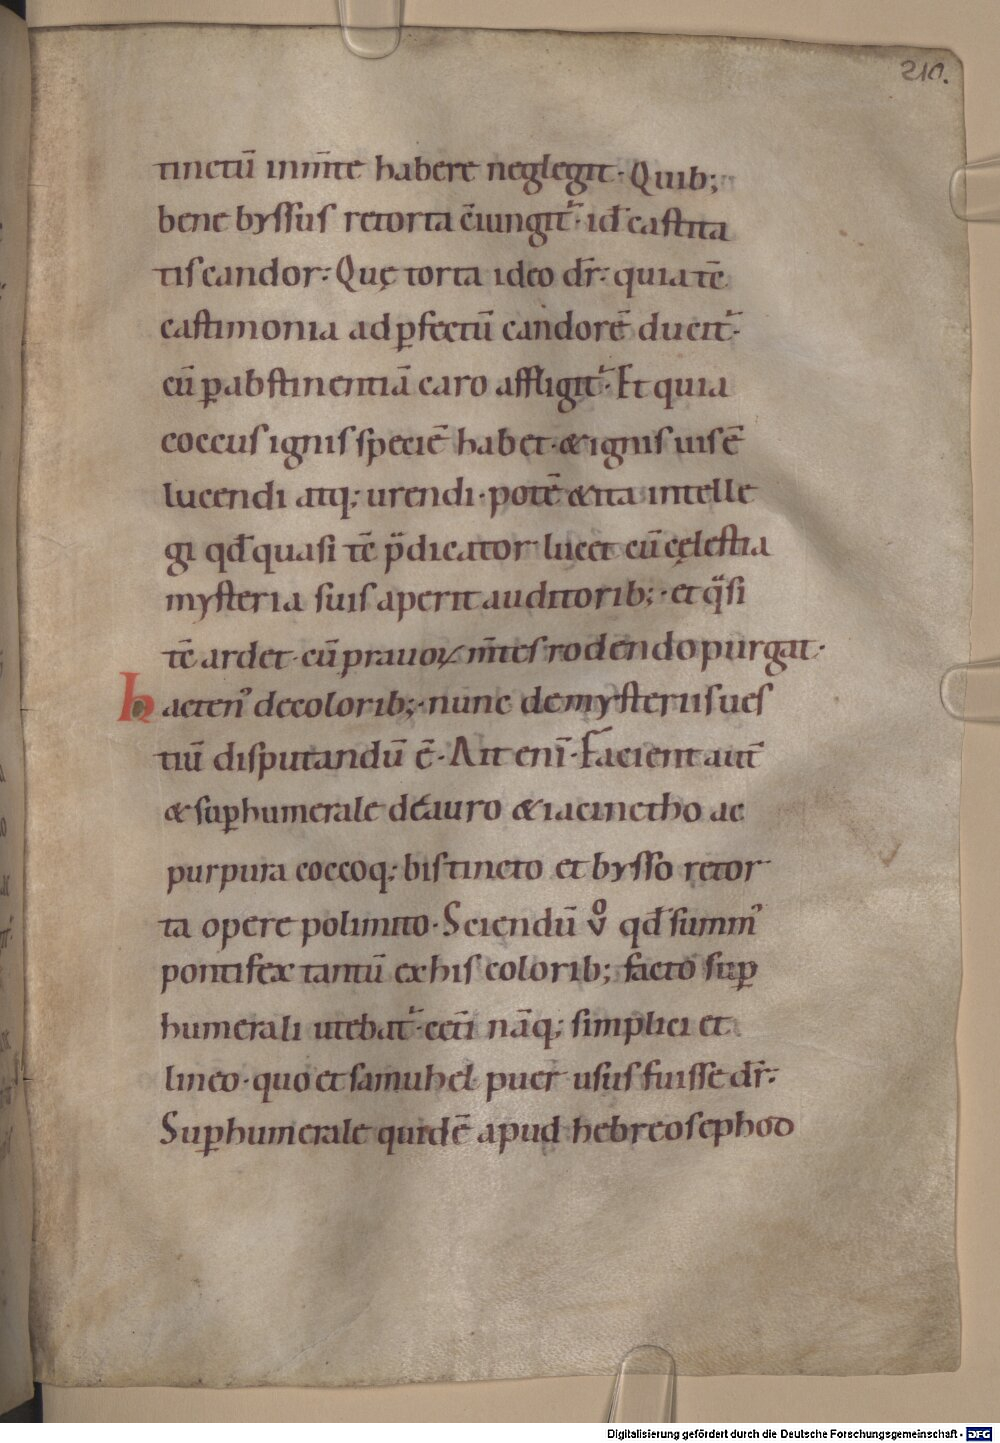 210.
tinctū inm̄te habere neglegit· Quib;
bene byssus retorta c̄iungit᷑· id̄ castita
tis candor: Quę torta ideo dr̄: quia tc̄
castimonia ad ꝑfectū candorē ducit᷑·
cū ꝑ abstinentiā caro affligit᷑· Et quia
coccus ignis speciē habet· & ignis uis ē
lucendi atq; urendi· potē & ita intelle
gi qđ quasi tc̄ p̄dicator lucet cū cęlestia
mysteria suis aperit auditorib;· et q̈si
tc̄ ardet· cū prauoꝝ m̄tes rodendo purgat·
hacten᾽ de colorib;· nunc de mysteriis ues
tiū disputandū ē· Ait eni̅· Facient aut̄
& suꝑhumerale de auro & iacinctho ac
purpura coccoq; bis tincto et bysso retor
ta opere polimito· Sciendū v̊ qđ summ᾽
pontifex tantū ex his colorib; facto suꝑ
humerali utebat᷑· cet̄i nāq; simplici et
lineo· quo et samuhel puer usus fuisse dr̄:
Suꝑhumerale quidē apud hebreos ephod
Digitalisierung gefördert durch die Deutsche Forschungsgemeinschaft - DFG